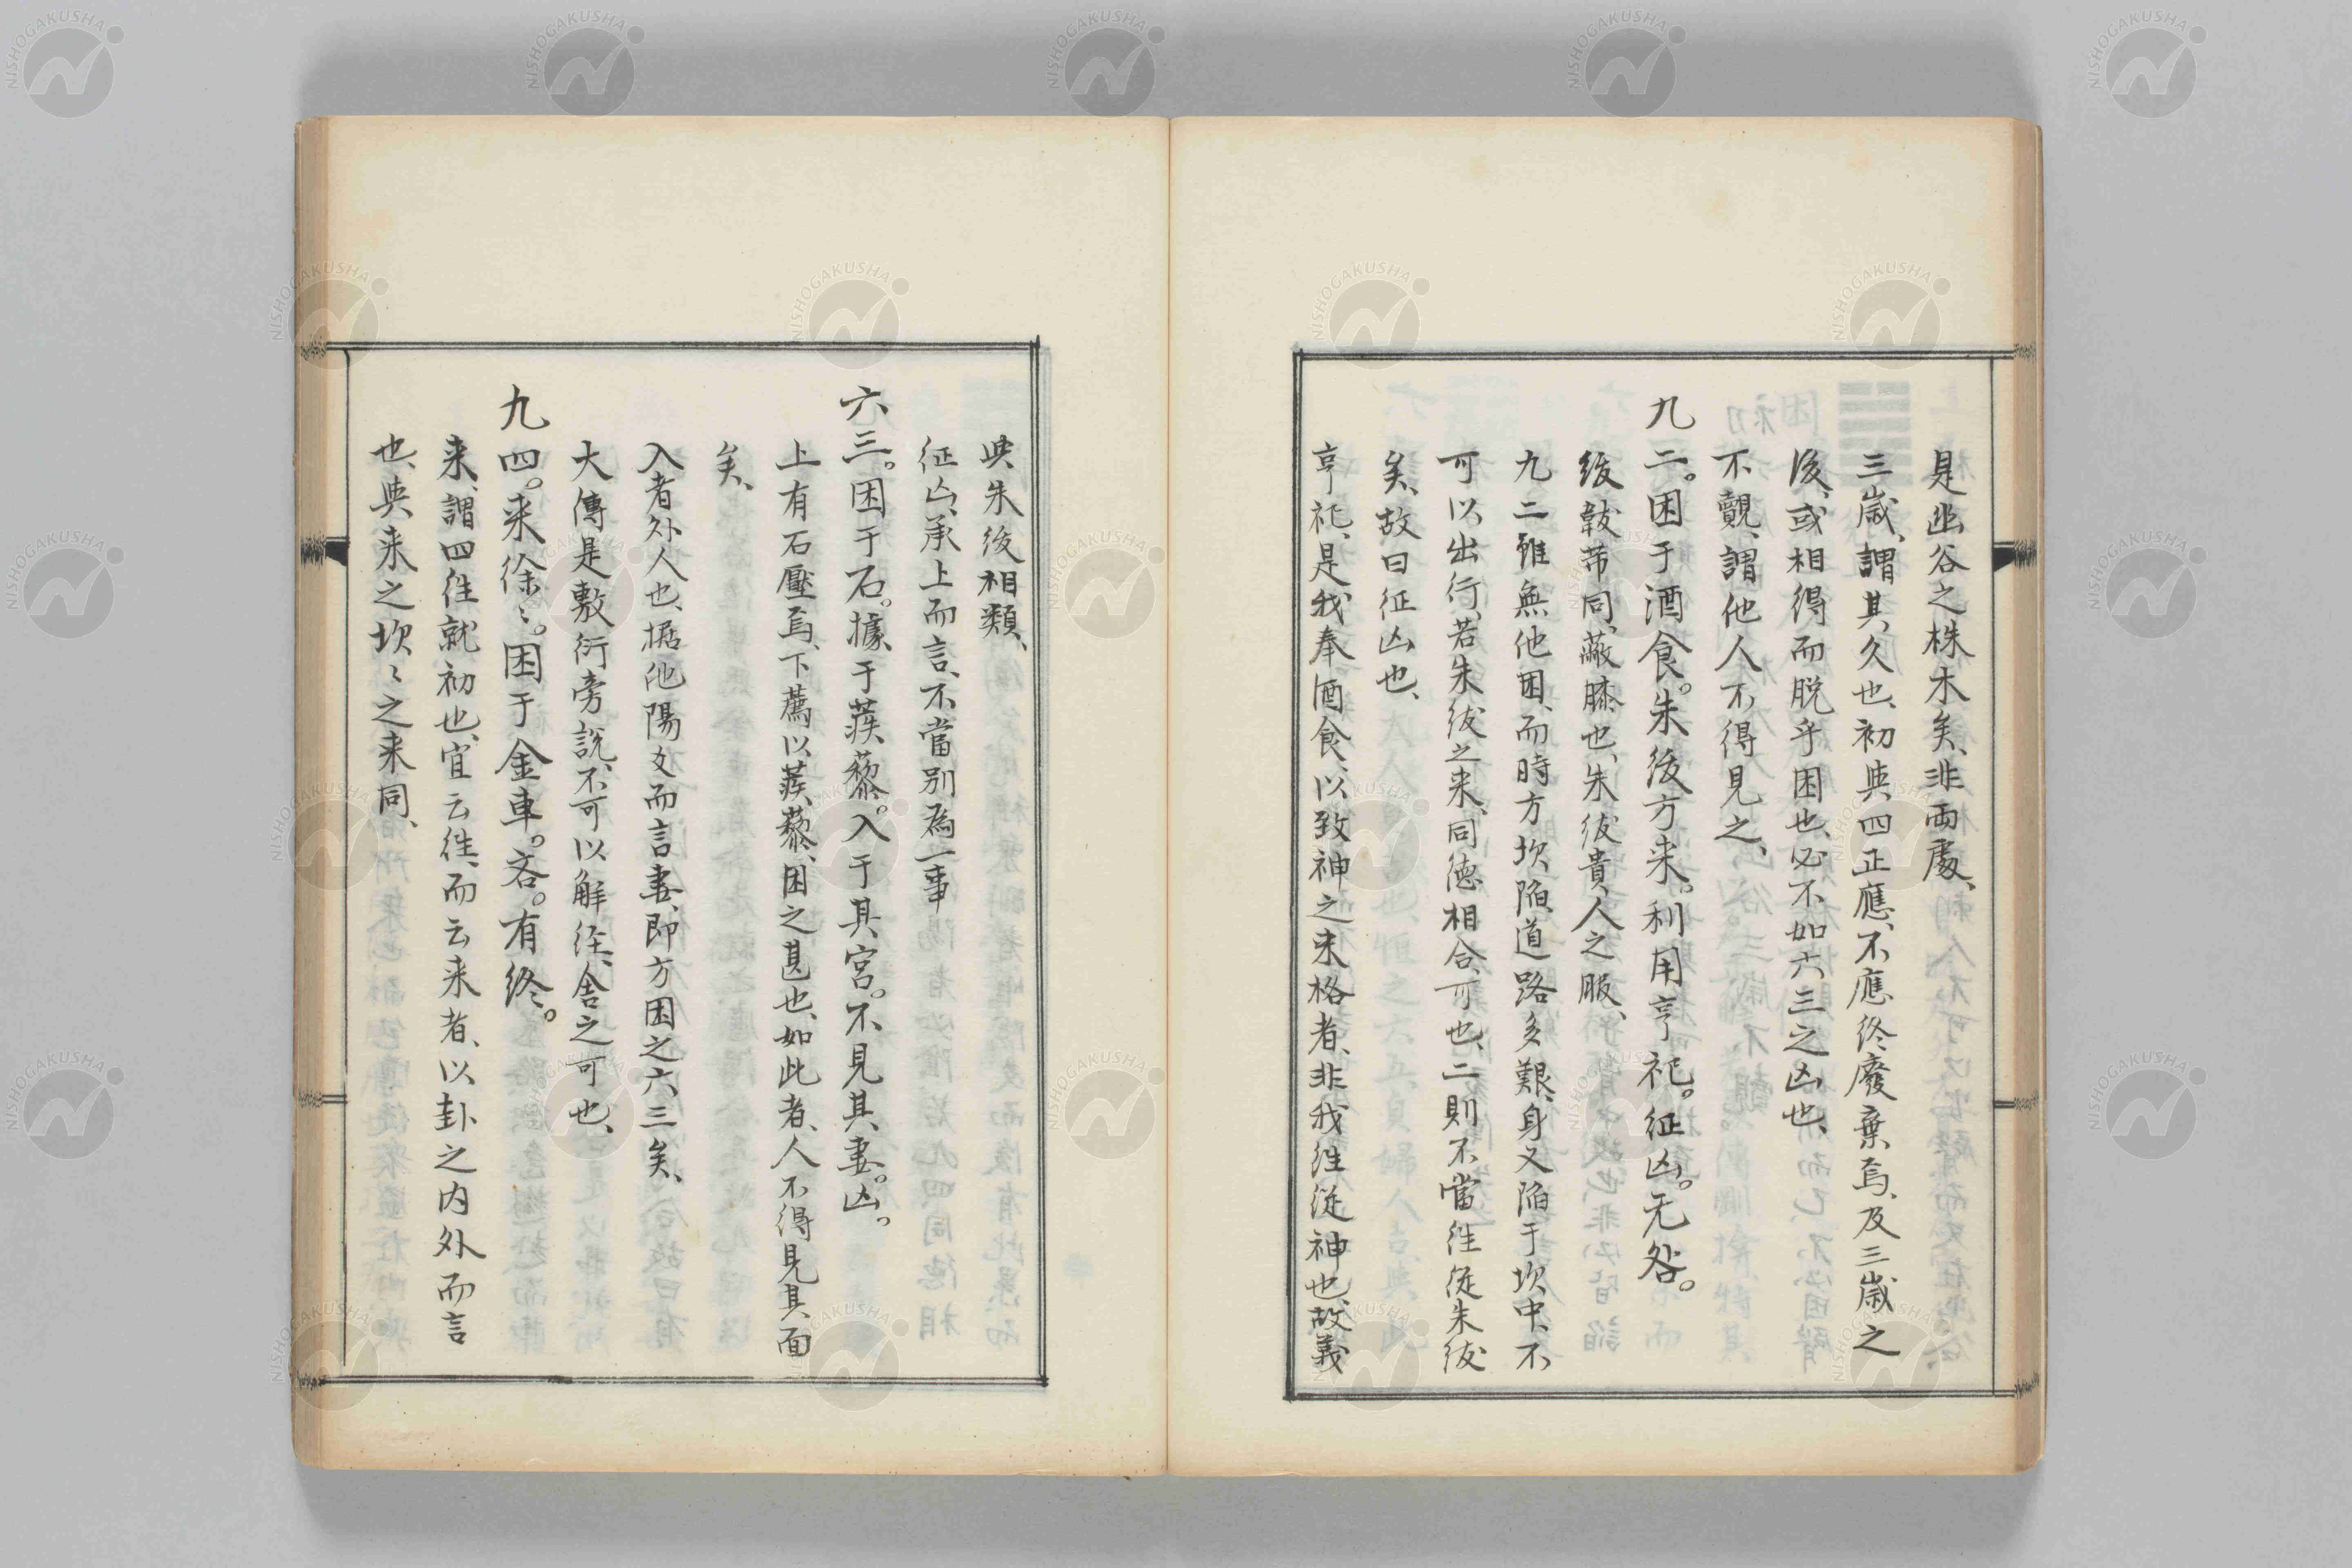 是幽谷之株木矣、非両處、
三歳、謂其久也、初與四正應、不應終廢棄焉、及三歳之
後、或相得而脱乎困也、必不如六三之凶也、
不覿、謂他人不得見之、
九二。困于酒食。朱紱方来。利用亨祀。征凶。无咎。
紱韍芾同、蔽膝也、朱紱貴人之服、
九二雖無他困、而時方坎陥、道路多艱、身又陥于坎中、不
可以出行、若朱紱之来、同徳相合、可也、二則不當往從朱紱
矣、故曰征凶也、
亨祀、是我奉酒食、以致神之来格者、非我往從神也、故義
與朱紱相類、
征凶、承上而言、不當別為一事
六三。困于石。據于蒺藜。入于其宮。不見其妻。凶。
上有石壓焉、下薦以蒺藜、困之甚也、如此者、人不得見其面
矣、
入者外人也、據他陽爻而言妻、即方困之六三矣、
大傳是敷衍旁説、不可以解經、舎之可也、
九四。来徐〻。困于金車。吝。有終。
来、謂四往就初也、宜云往、而云来者、以卦之内外而言
也、與来之坎〻之来同、
NISHOGAKUSHA